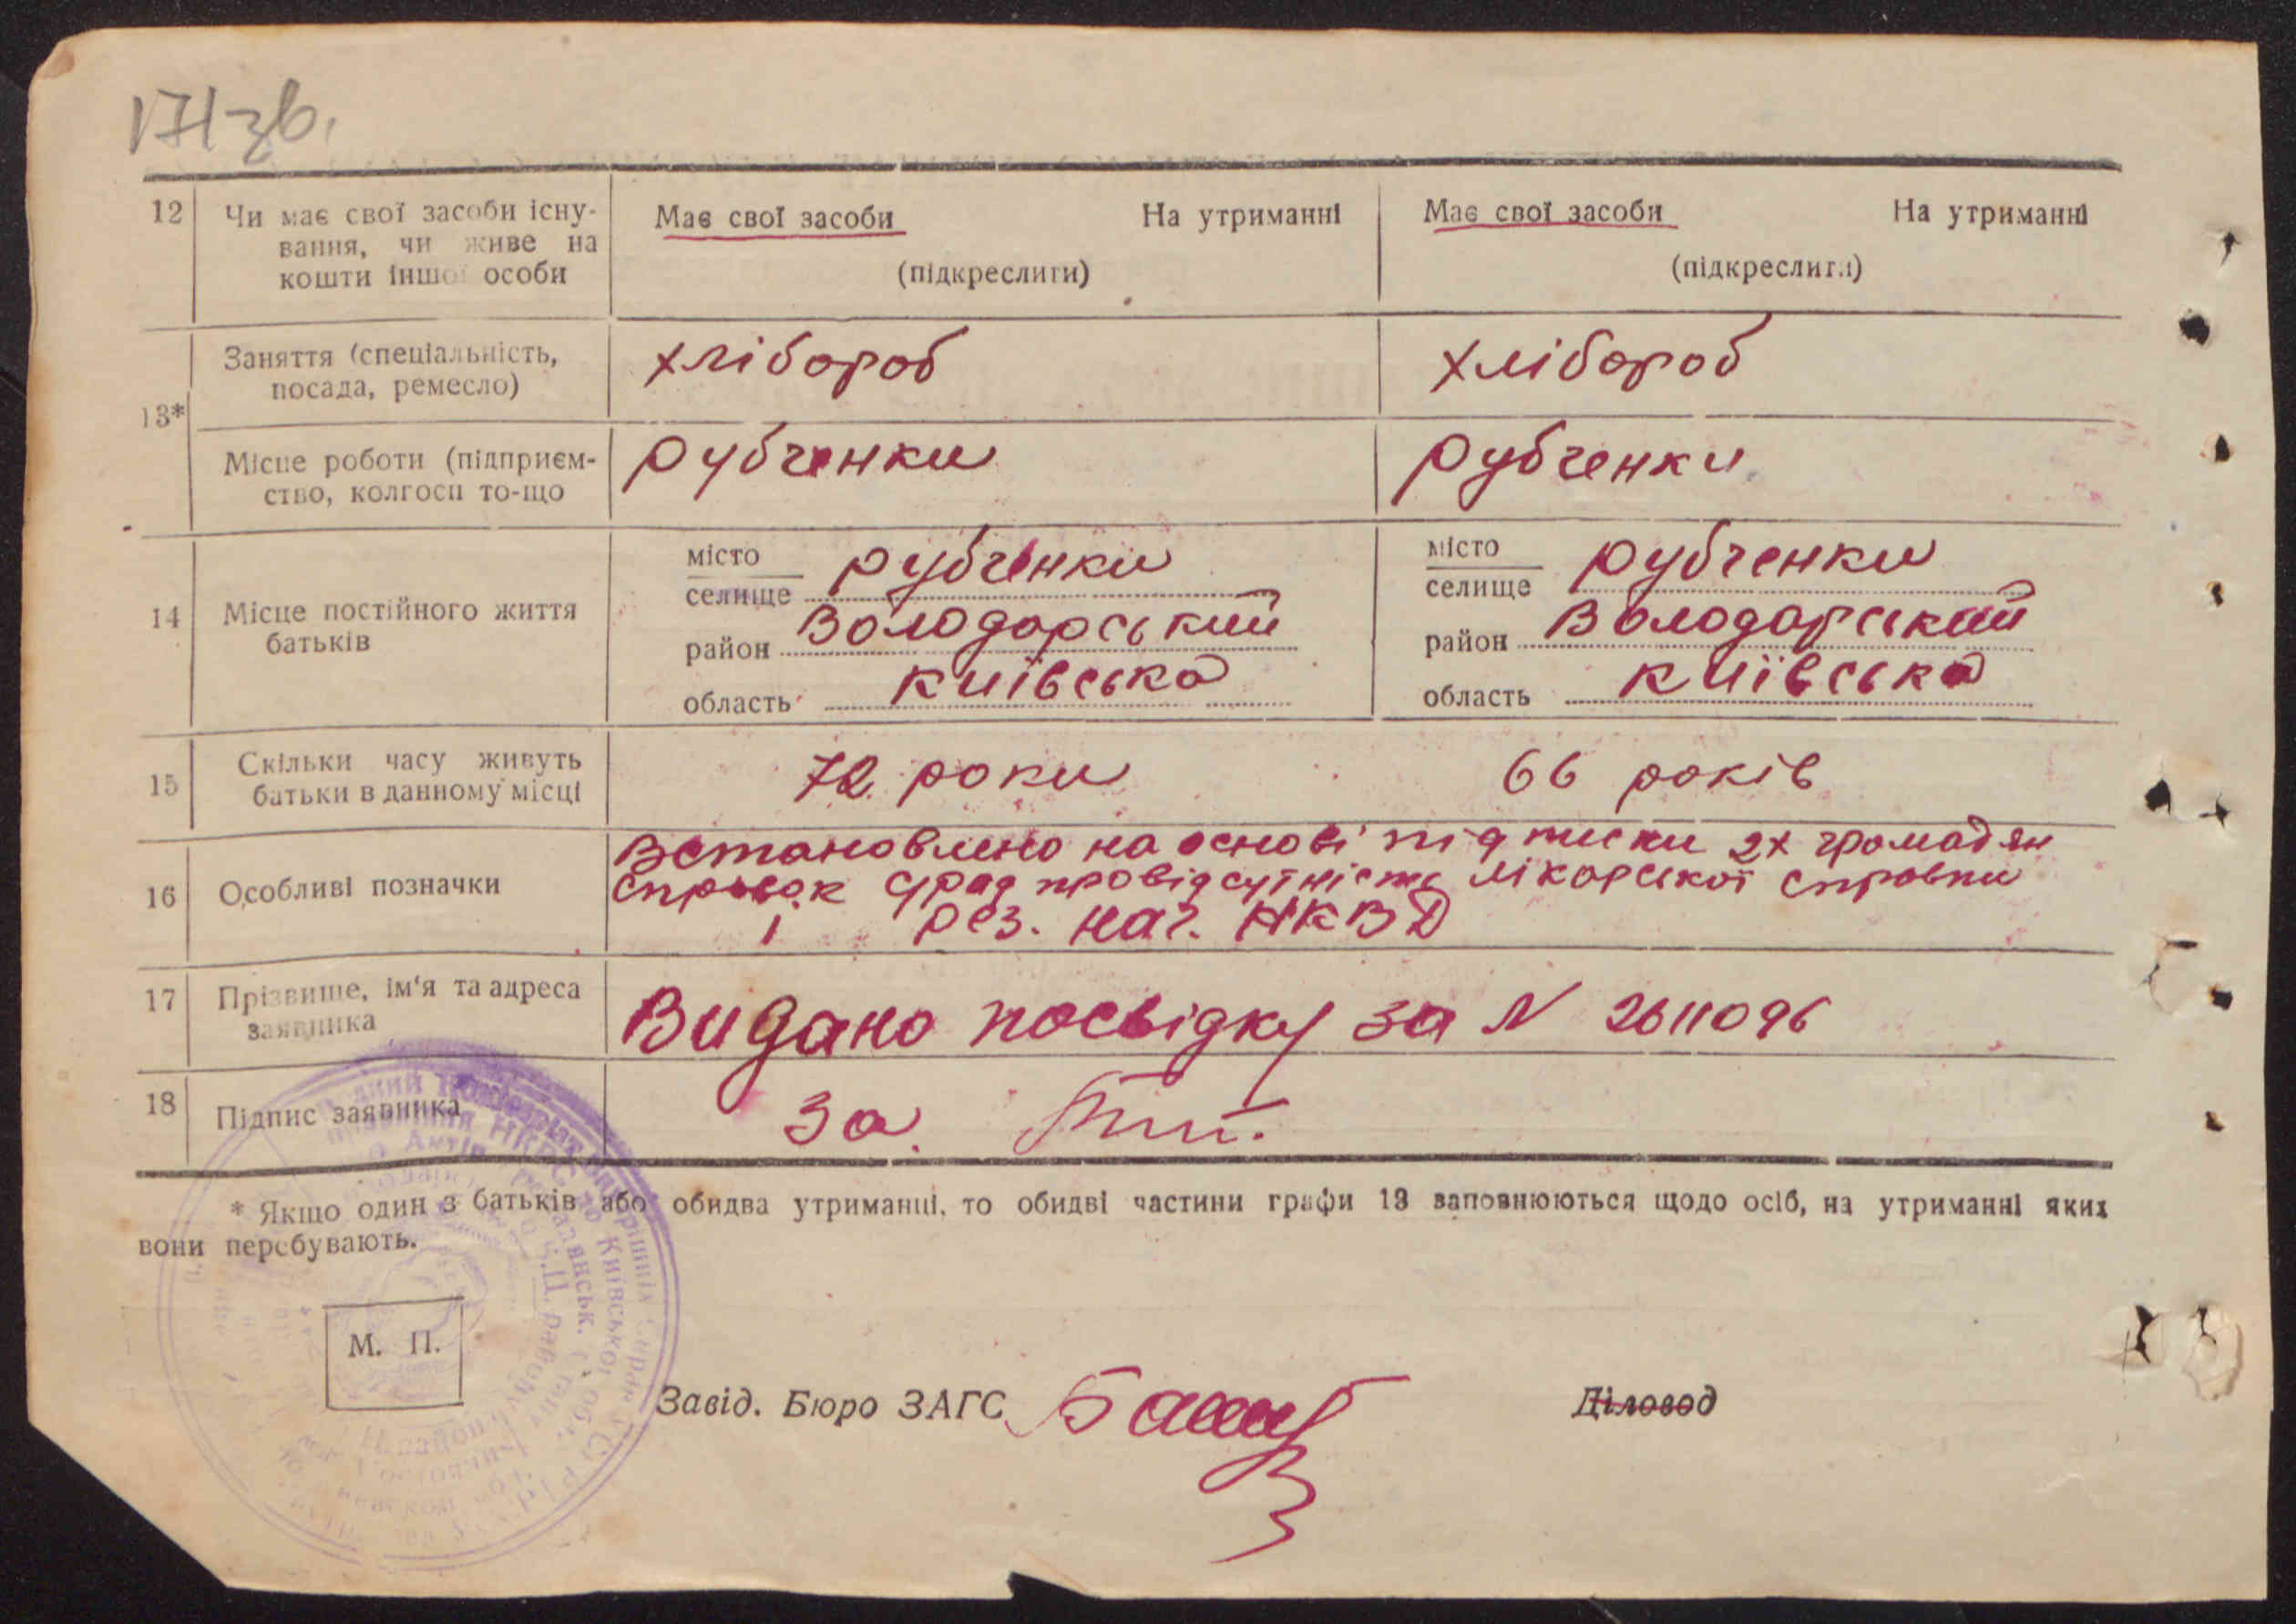 171 зв.
12 Чи має свої засоби існу- Має свої засоби На утриманні Має свої засоби На утриманні
вання, чи живе на
кошти іншої особи (підкреслити) (підкреслити)
Заняття (спеціальність, хлібороб хлібороб
посада, ремесло)
13*
Місце роботи (підприєм- Рубченки Рубченки
ство, колгосп то-що
місто Рубченки місто Рубченки
селище селище
14 Місце постійного життя
батьків
район Володарський район Володарський
область київська область київська
15 Скільки часу живуть 72 роки 66 років
батьки в данному місці
Встановлено на основі підписки 2х громадян
16 Особливі позначки справок с/рад про відсутність лікарської справки
і рез. нач. НКВД
17 Прізвище, ім'я та адреса Видано посвідку за N 2611096
заявника
18 Підпис заявника За
* Якщо один з батьків або обидва утриманці, то обидві частини графи 13 заповнюються щодо осіб, на утриманні яких
вони перебувають.
М. П.
Завід. Бюро ЗАГС Діловод